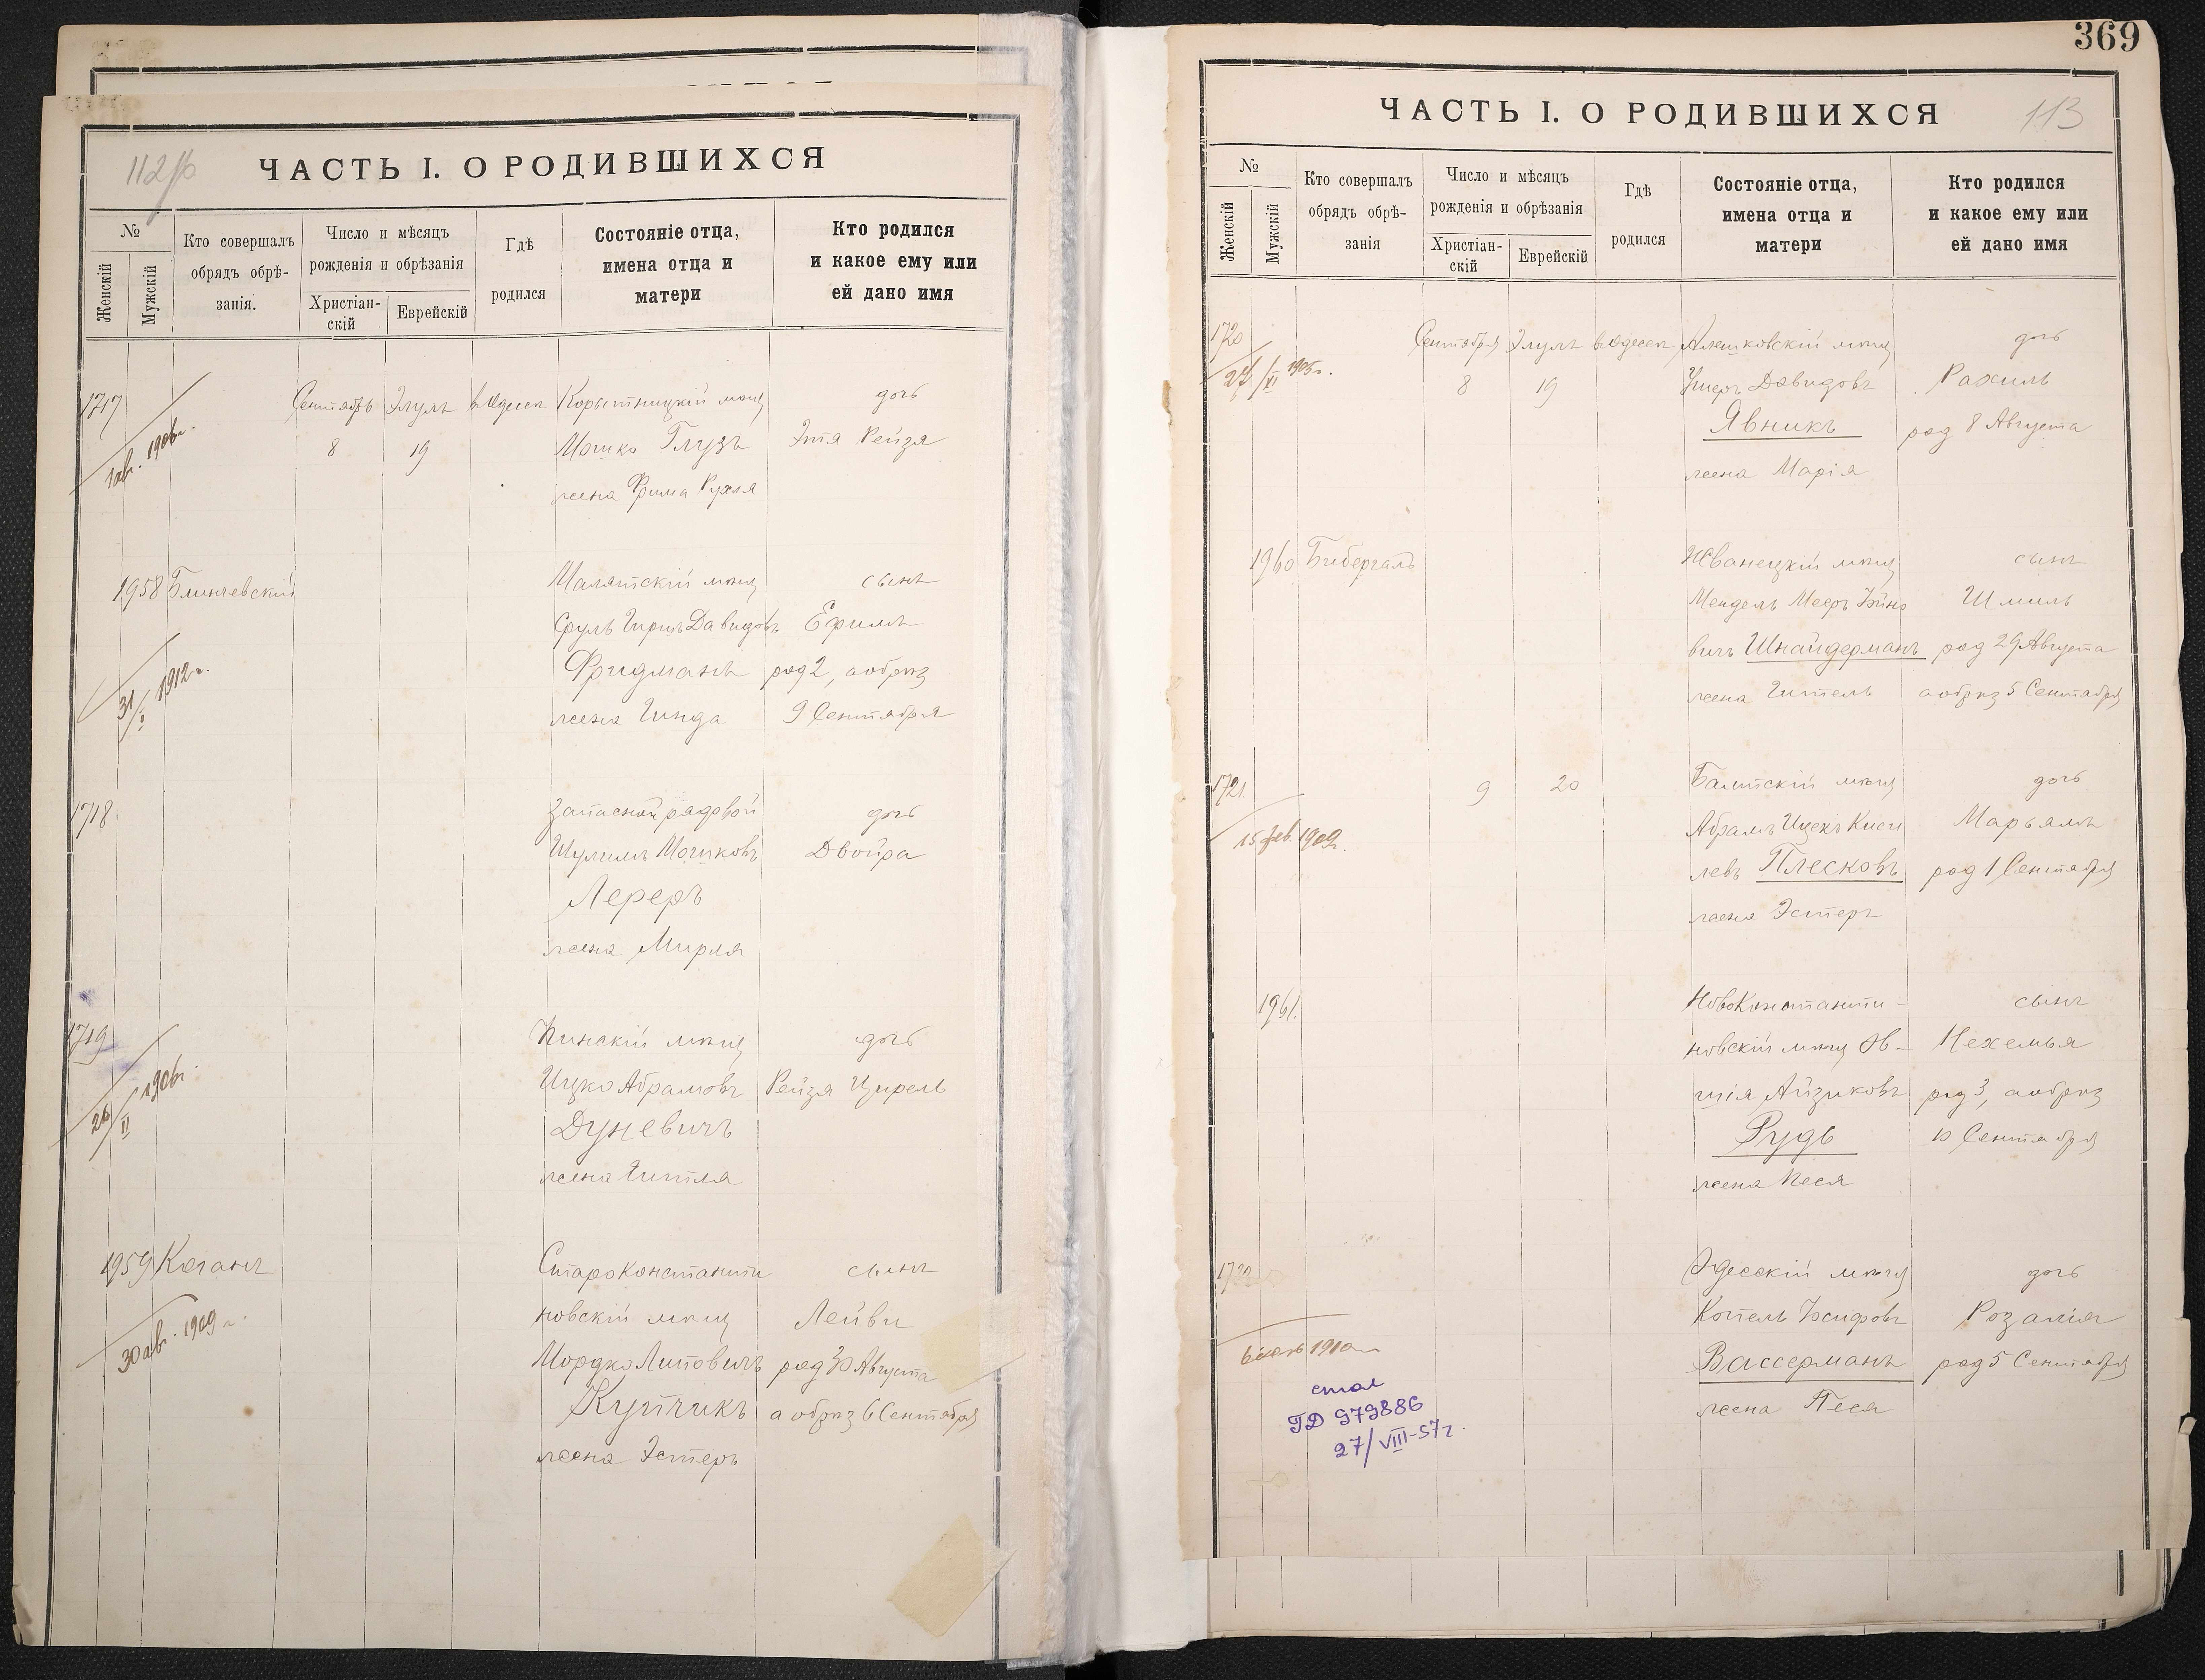 112об
ЧАСТЬ I. О РОДИВШИХСЯ
№
Женскій
Мужскій
Кто совершалъ
обрядъ обрѣ-
занія.
Число и мѣсяцъ
рожденія и обрѣзанія
Христіан-
скій
Еврейскій
Гдѣ
родился
Состояніе отца,
имена отца и
матери
Кто родился
и какое ему или
ей дано имя
1717 Сентябрь Элулъ въ Одессѣ Корытницкій мѣщ дочь
8 19 Мошко Глузъ Этя Рейзя
1 ав. 1906г.
жена Фрима Рухля
1958 Блинчевскій мѣщ сынъ
Сруль Гиршъ Давидовъ Ефимъ
Фридманъ род 2, а обрѣз
31/X 1912г.
жена Гинда 9 Сентября
1718 Запасной рядовой дочь
Шулимъ Мошковъ Двойра
Лереръ
жена Мирля
1719 Пинскій мѣщ дочь
Ицко Абрамовъ Рейзя Цирель
26/II 1906г.
Дуневичъ
жена Гитля
1959 Коганъ Староконстанти
новскій мѣщ сынъ
Лейви
30 ав. 1909г.
Мордко Липовичъ род 30 Августа
Купчикъ а обрѣз 6 Сентября
жена Эстеръ
369
113
ЧАСТЬ I. О РОДИВШИХСЯ
№
Женскій
Мужскій
Кто совершалъ
обрядъ обрѣ-
занія
Число и мѣсяцъ
рожденія и обрѣзанія
Христіан-
скій
Еврейскій
Гдѣ
родился
Состояніе отца,
имена отца и
матери
Кто родился
и какое ему или
ей дано имя
1720 Сентября Элулъ въ Одессѣ Алешковскій мѣщ дочь
27/XI 1905г.
8 19 Ушеръ Давидовъ Рахиль
Явникъ род 8 Августа
жена Марія
1960 Бибергалъ Жванецкій мѣщ сынъ
Мендель Мееръ Хаимо Шмиль
вичъ Шнайдерманъ род 29 Августа
жена Гитель а обрѣз 5 Сентября
1721. 9 20 Балтскій мѣщ дочь
Абрамъ Ицекъ Киси Марьямъ
15 фев. 1909г.
левъ Плесковъ род 1 Сентября
жена Эстеръ
1961. Новоконстанти-
новскій мѣщ сынъ
Нехемья
шія Айзиковъ род 3, а обрѣз
Рудь 10 Сентября
жена Песя
1722 Одесскій мѣщ дочь
Копель Іосифовъ Розалія
1910г.
Вассерманъ род 5 Сентября
жена Песя
979886
27/VIII-57г.